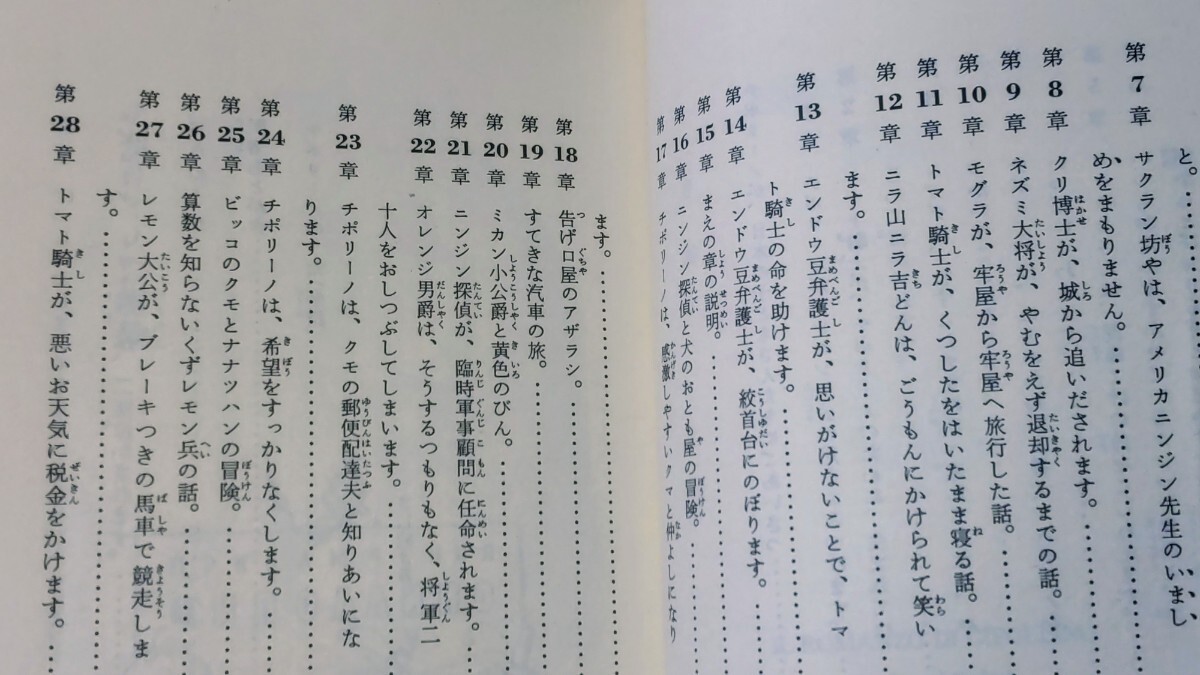 と。…………
第7章 サクラン坊やは、アメリカニンジン先生のいまし
めをまもりません。…………
第8章 クリ博士が、城から追いだされます。…………
第9章 ネズミ大将が、やむをえず退却するまでの話。
第10章 モグラが、牢屋から牢屋へ旅行した話。…………
第11章 トマト騎士が、くつしたをはいたまま寝る話。
第12章 ニラ山ニラ吉どんは、ごうもんにかけられて笑い
ます。…………
第13章 エンドウ豆弁護士が、思いがけないことで、トマ
ト騎士の命を助けます。…………
第14章 エンドウ豆弁護士が、絞首台にのぼります。
第15章 まえの章の説明。…………
第16章 ニンジン探偵と犬のおとも屋の冒険。…………
第17章 チポリーノは、感激しやすいクマと仲よしになり
ます。…………
第18章 告げ口屋のアザラシ。…………
第19章 すてきな汽車の旅。…………
第20章 ミカン小公爵と黄色のびん。…………
第21章 ニンジン探偵が、臨時軍事顧問に任命されます。
第22章 オレンジ男爵は、そうするつもりもなく、将軍二
十人をおしつぶしてしまいます。…………
第23章 チポリーノは、クモの郵便配達夫と知りあいにな
ります。…………
第24章 チポリーノは、希望をすっかりなくします。
第25章 ビッコのクモとナナツハンの冒険。…………
第26章 算数を知らないくずレモン兵の話。…………
第27章 レモン大公が、ブレーキつきの馬車で競走しま
す。…………
第28章 トマト騎士が、悪いお天気に税金をかけます。